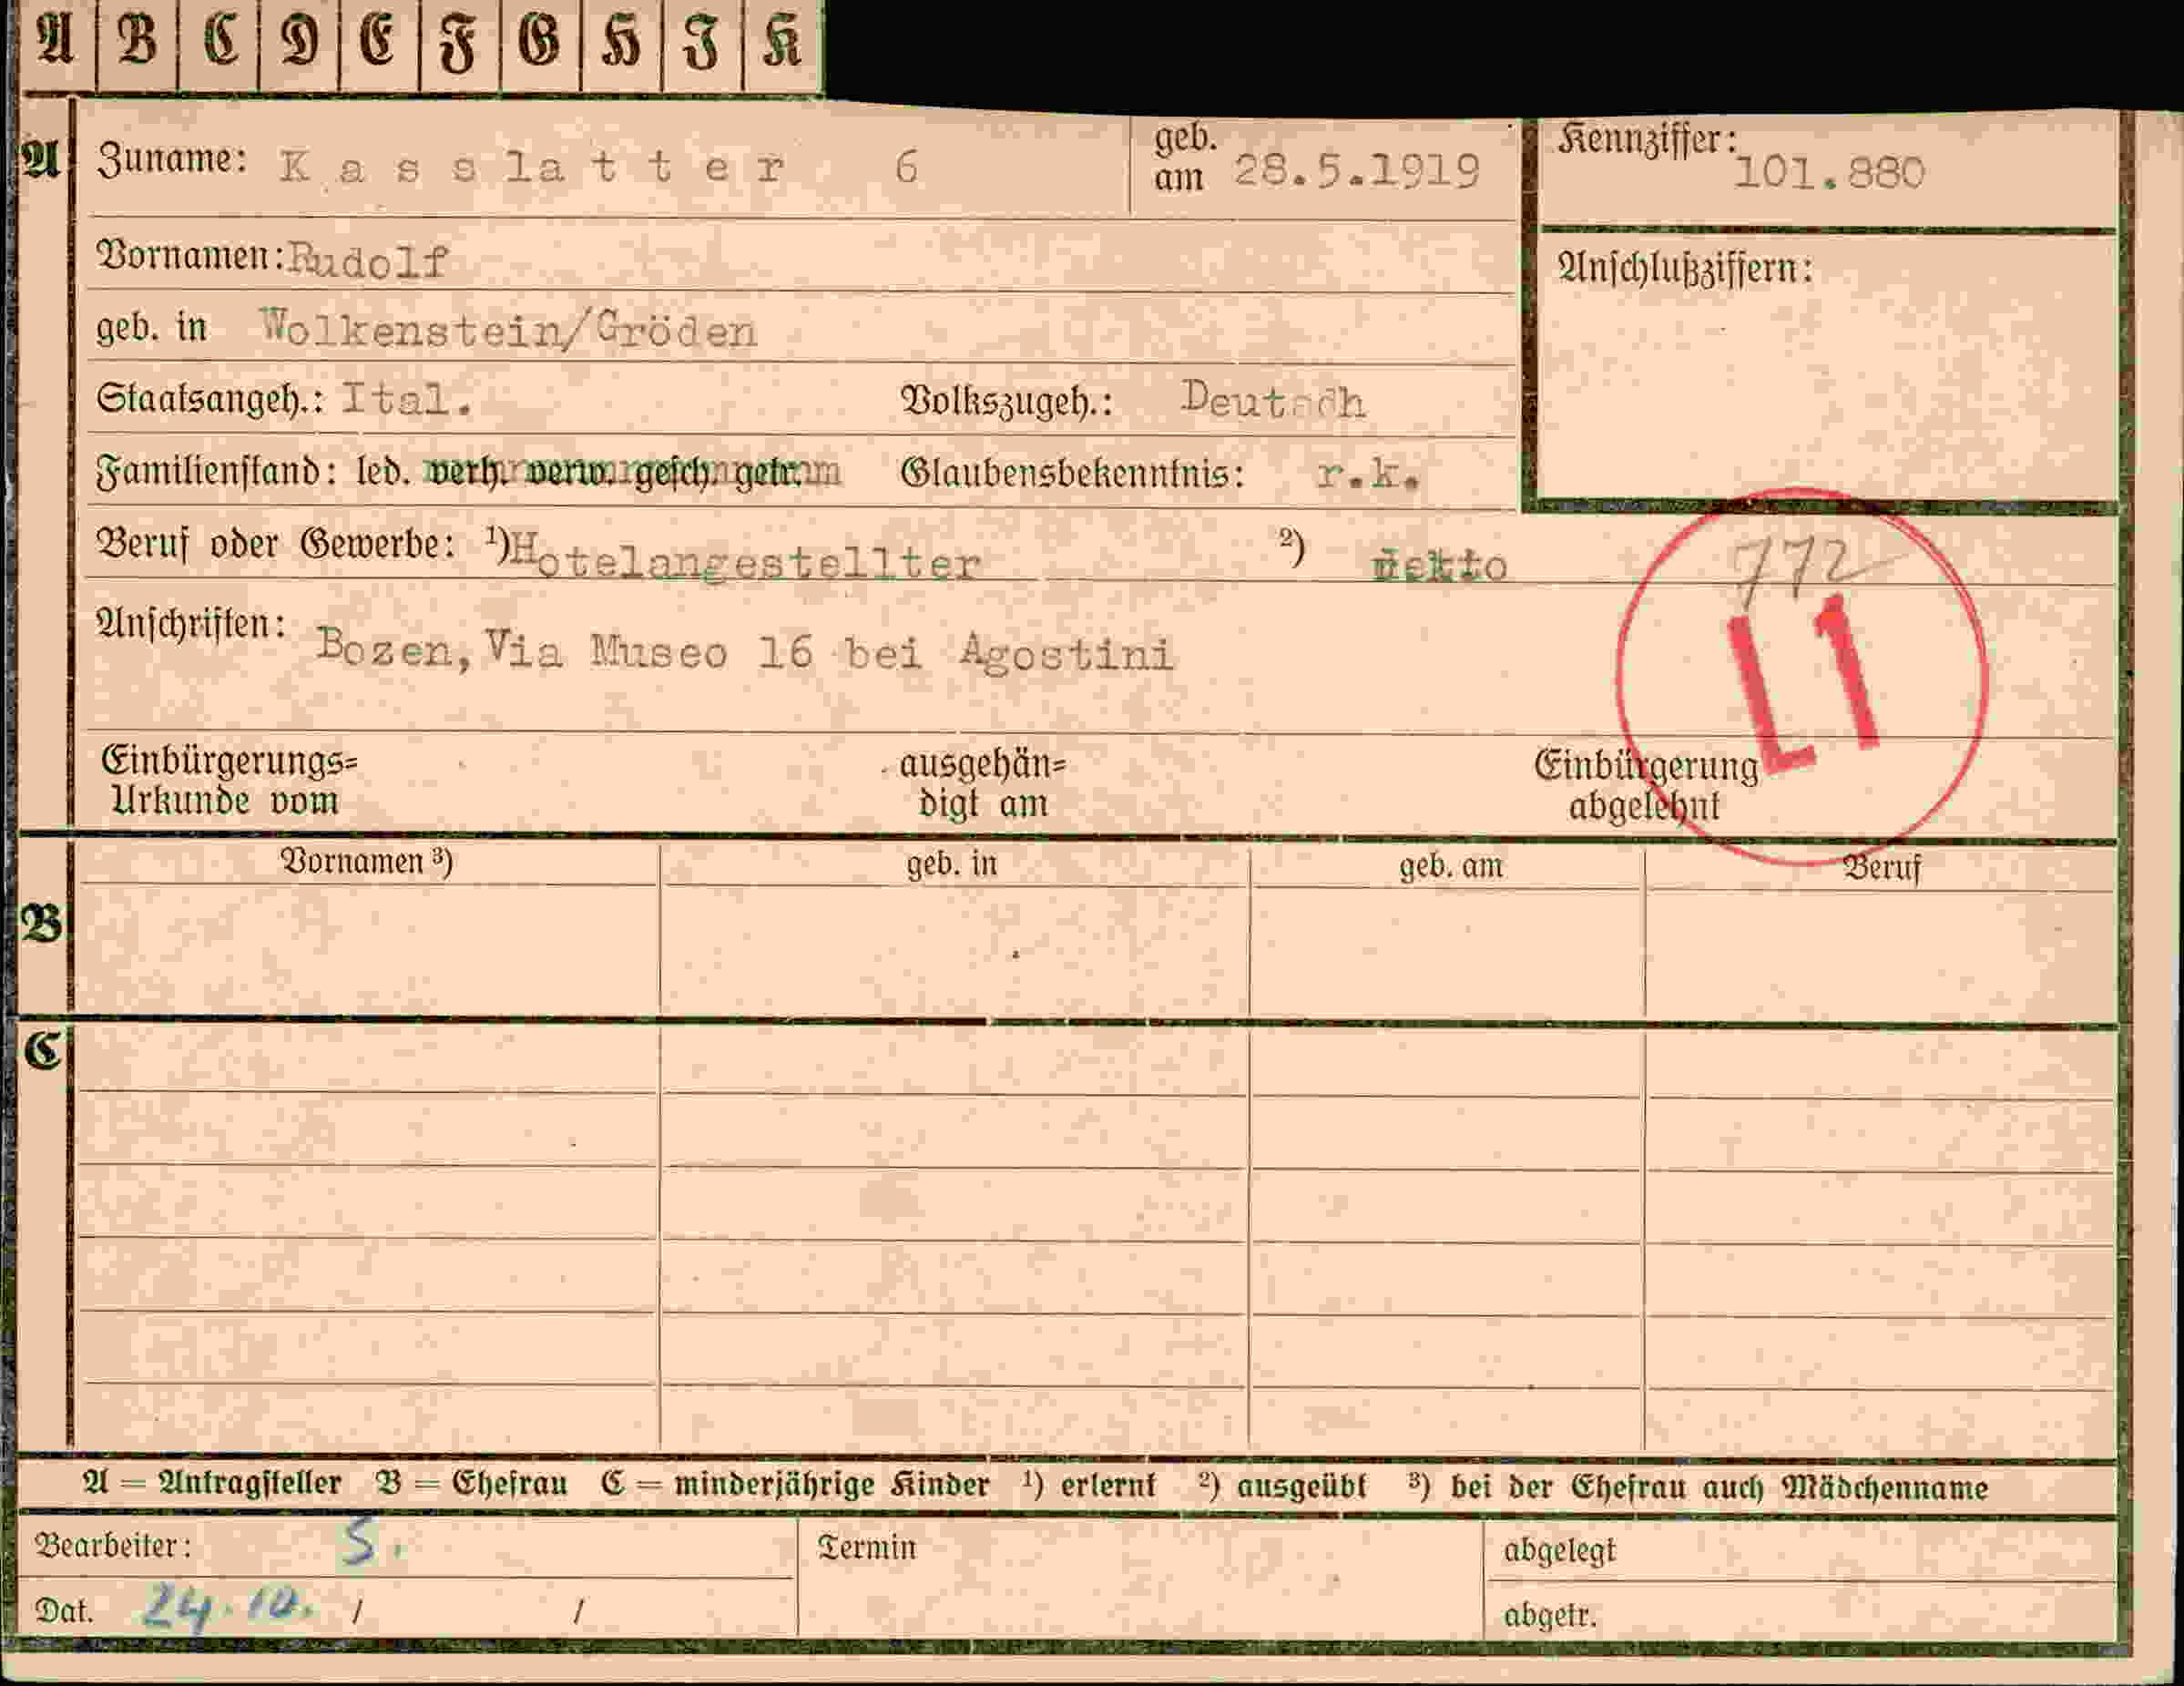 A B C D E F G H J K
A Zuname: Kasslatter 6 geb. am 28.5.1919 Kennziffer: 101.880
Vornamen: Rudolf Anschlußziffern:
geb. in Wolkenstein/Gröden
Staatsangeh.: Ital. Volkszugeh.: Deutsch
Familienstand: led. verh. verw. gesch. getr. Glaubensbekenntnis: r.k.
Beruf oder Gewerbe: ¹) Hotelangestellter ²) detto
772
L1
Anschriften: Bozen, Via Museo 16 bei Agostini
Einbürgerungs= ausgehän= Einbürgerung
Urkunde vom digt am abgelehnt
Vornamen ³) geb. in geb. am Beruf
B
C
A = Antragsteller B = Ehefrau C = minderjährige Kinder ¹) erlernt ²) ausgeübt ³) bei der Ehefrau auch Mädchenname
Bearbeiter: S. Termin abgelegt
Dat. 24.10. / / abgetr.